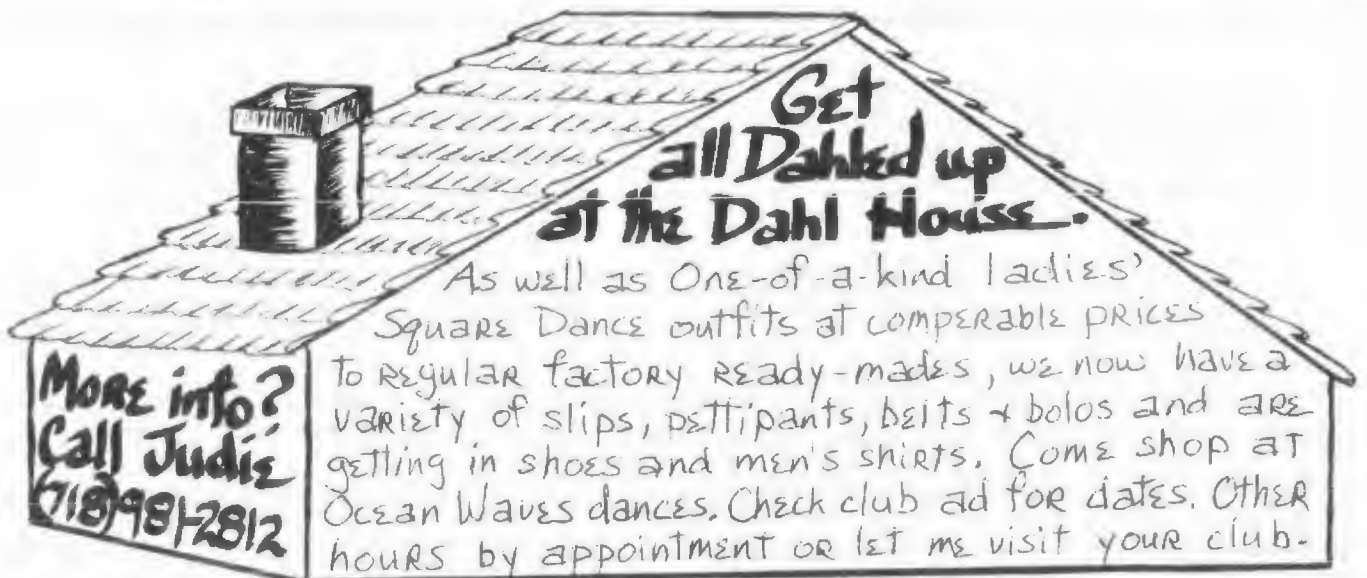 Get
all Dahled up
at the Dahl House.
As well as One-of-a-kind ladies'
Square Dance outfits at comperable prices
to regular factory ready-mades, we now have a
variety of slips, pettipants, belts & bolos and are
getting in shoes and men's shirts. Come shop at
Ocean Waves dances. Check club ad for dates. Other
hours by appointment or let me visit your club.
More info?
Call Judie
(718)981-2812